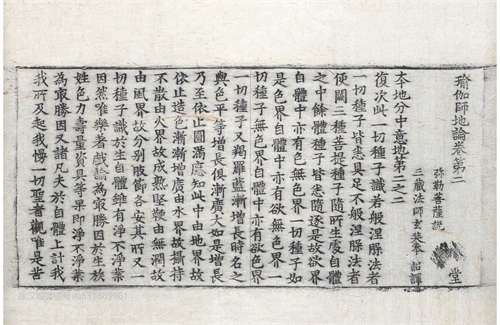 瑜伽師地論卷第二
彌勒菩薩說
三藏法師玄奘奉 詔譯
堂
本地分中意地第二之二
復次此一切種子識若般涅槃法者
一切種子皆悉具足不般涅槃法者
便闕三種菩提種子隨所生處自體
之中餘體種子皆悉隨逐是故欲界
自體中亦有色無色界一切種子如
是色界自體中亦有欲無色界一
切種子無色界自體中亦有欲色界
一切種子又羯羅藍漸增長時名之
與色平等增長俱漸廣大如是增長
乃至依止圓滿應知此中由地界故
依止造色漸漸增廣由水界故攝持
不散由火界故成熟堅鞕由無潤故
由風界故分別肢節各安其所又一
切種子識於生自體雖有淨不淨業
因然唯樂著戲論為㝡勝因於生族
姓色力壽量資具等果即淨不淨業
為㝡勝因又諸凡夫於自體上計我
我所及起我慢一切聖者觀唯是苦